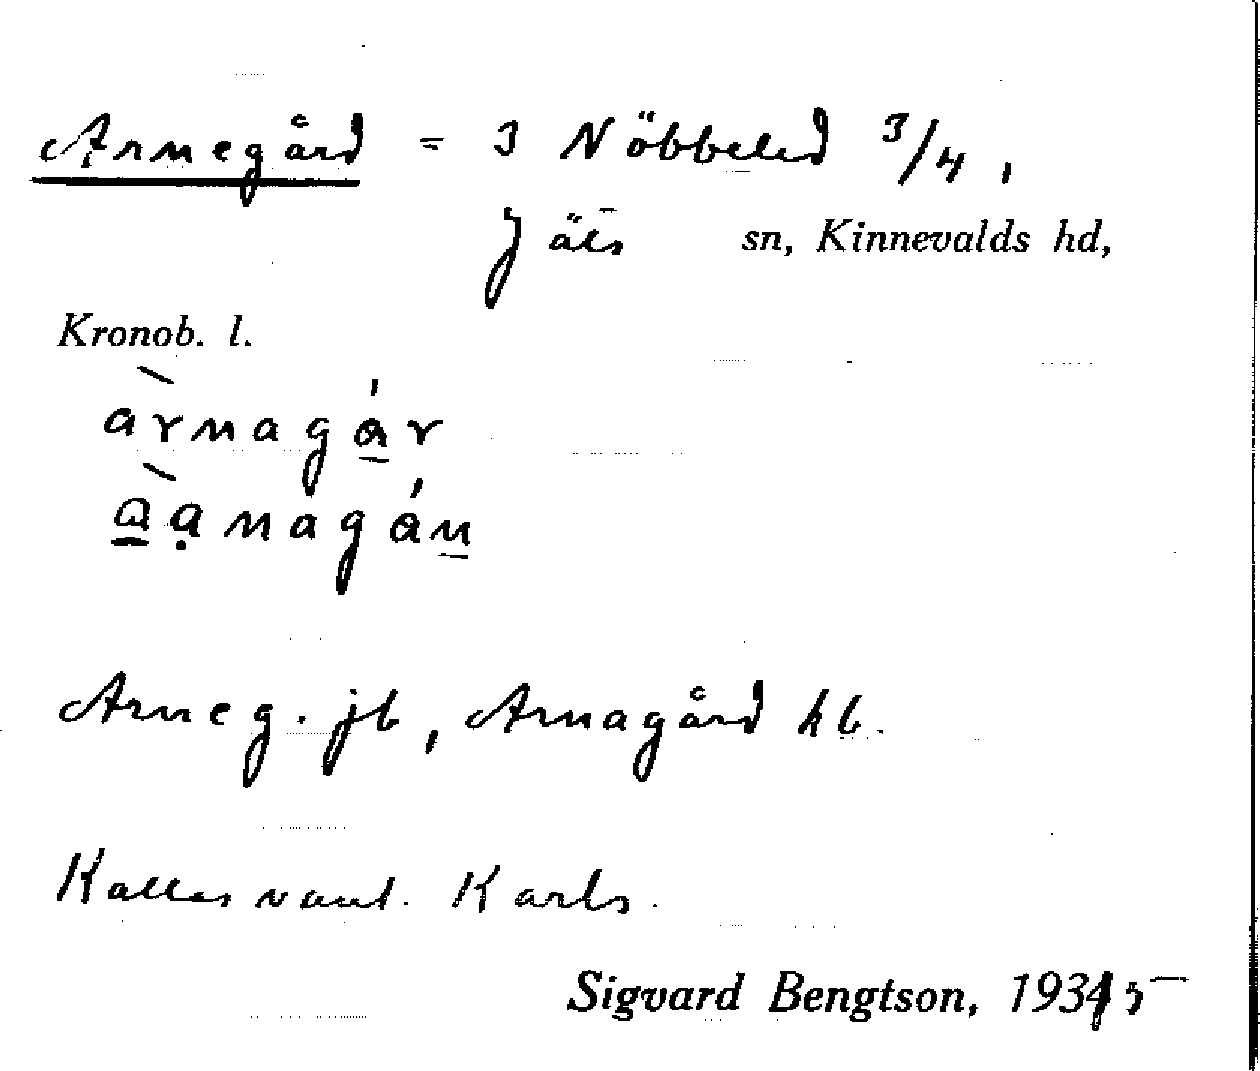 Arnegård = 3 Nöbbeled 3/4,
Jäts sn, Kinnevalds hd,
Kronob. l.
àrnagá̱r
à̱ạnagáṉ
Arneg. jb, Arnagård hb.
Kallas vanl. Karls.
Sigvard Bengtson, 1935